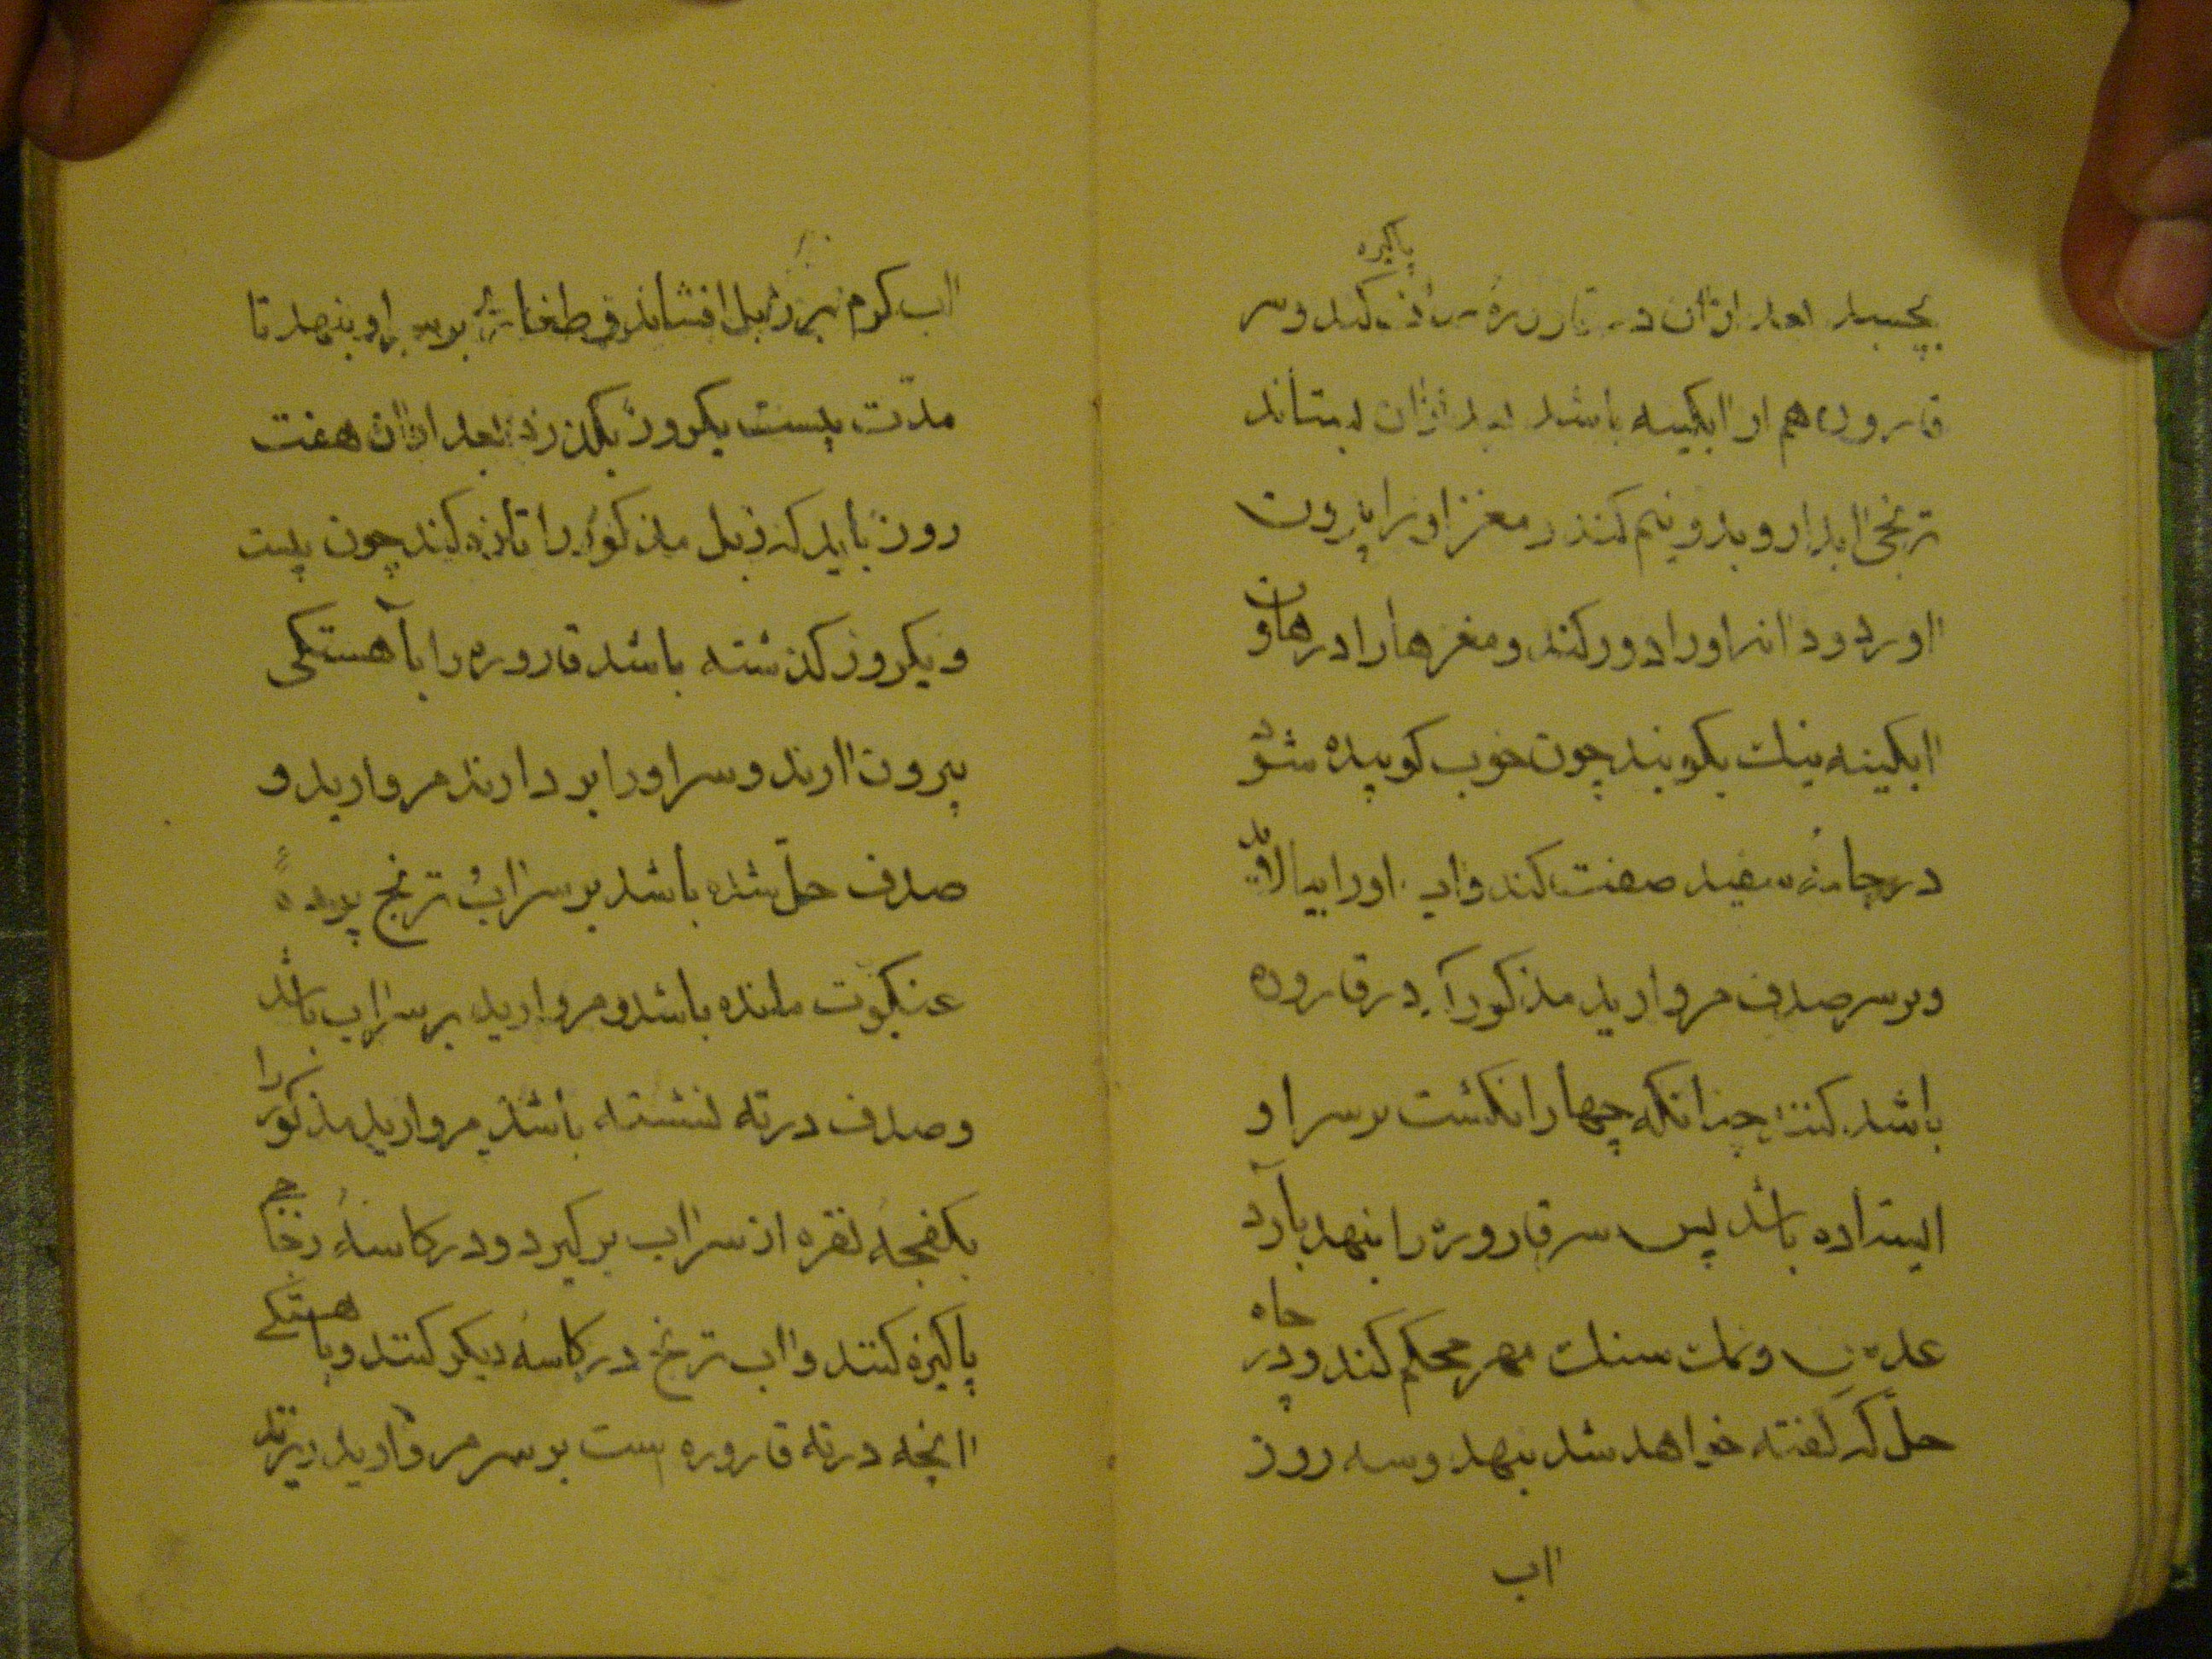 پاکیزه
بچسبد بعد ازاان در قاروره کند و سر
قاروره هم از اابکینه باشد بعد ازاان بستاند
ترنجی اابدار و بدو نیم کند و مغز او را بیرون
ااورد و دانه او را دور کند و مغزها را در هاون
اابکینه بکوبند چون خوب کوبیده شود
در جامهٔ سفید کند و ااب او را بپالاید
و بر سر صدف مروارید مذکور که در قاروره
باشد کنند چنانکه چهار انکشت بر سر او
ایستاده باشد پس سر قاروره را بنهد بآرد
و نمک سنک مهر محکم کند و در چاه
حلّ که کفته خواهد شد بنهد و سه روز
ااب
ااب کرم بر زبل افشاند و بر او بنهد تا
مدّت بیست یکروز بکذرد بعد ازاان هفت
روز باید که زبل مذکور را تازه کند چون بیست
و یکروز کذشته باشد قاروره را بآهستکی
بیرون اارند و سر او را بردارند مروارید و
صدف حلّ شده باشد بر سر ااب ترنج پرده
عنکبوت مانده باشد و مروارید بر سر ااب باشد
و صدف در ته نشسته باشد مروارید مذکور را
بکفچهٔ نقره از سر ااب برکیرد و در کاسهٔ زجاج
پاکیزه کنند و ااب ترنج در کاسهٔ دیکر کنند و بآهستکی
اانچه در ته قاروره است بر سر مروارید ریزند